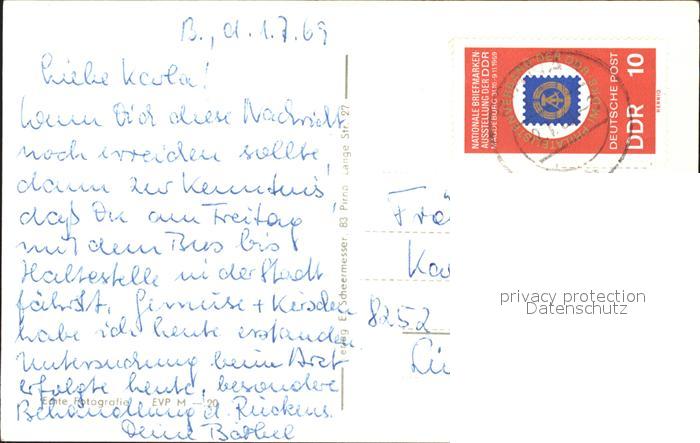 B., d. 1.7.69
Liebe Karla!
Wenn Dich diese Nachricht
noch erreichen sollte,
dann zur Kenntnis,
daß Du am Freitag
mit dem Bus bis
Haltestelle in der Stadt
fährst. Gemüse + Kirschen
habe ich heute erstanden.
Untersuchung beim Arzt
erfolgte heute, besondere
Behandlung d. Rückens.
Deine Bärbel
Echte Fotografie EVP M —.20
Verlag E. Scheermesser, 83 Pirna, Lange Str. 27
NATIONALE BRIEFMARKEN-
AUSSTELLUNG DER DDR
MAGDEBURG 31.10.-9.11.1969
DEUTSCHE POST
DDR 10
HERRIG
Frä
Kar
8252
privacy protection
Datenschutz